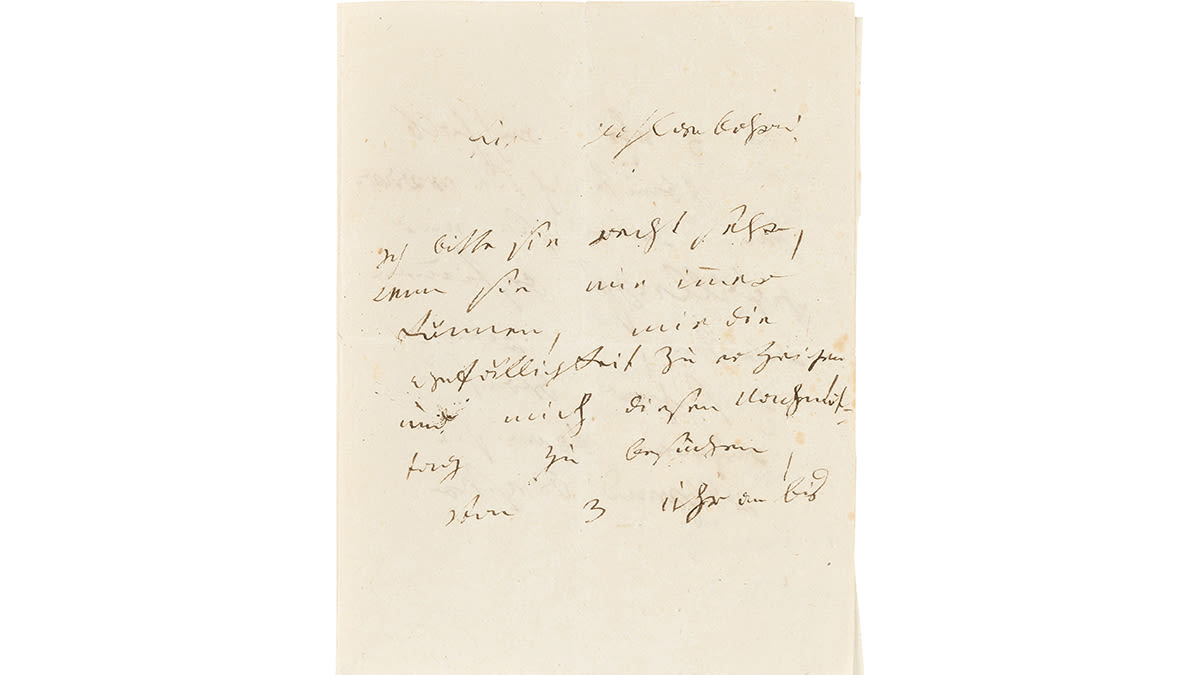 ich bitte sie recht sehr,
wenn sie nur immer
können, mir die
gefälligkeit zu erzeigen
und mich diesen Nachmit-
tag zu besuchen,
von 3 uhr an bis